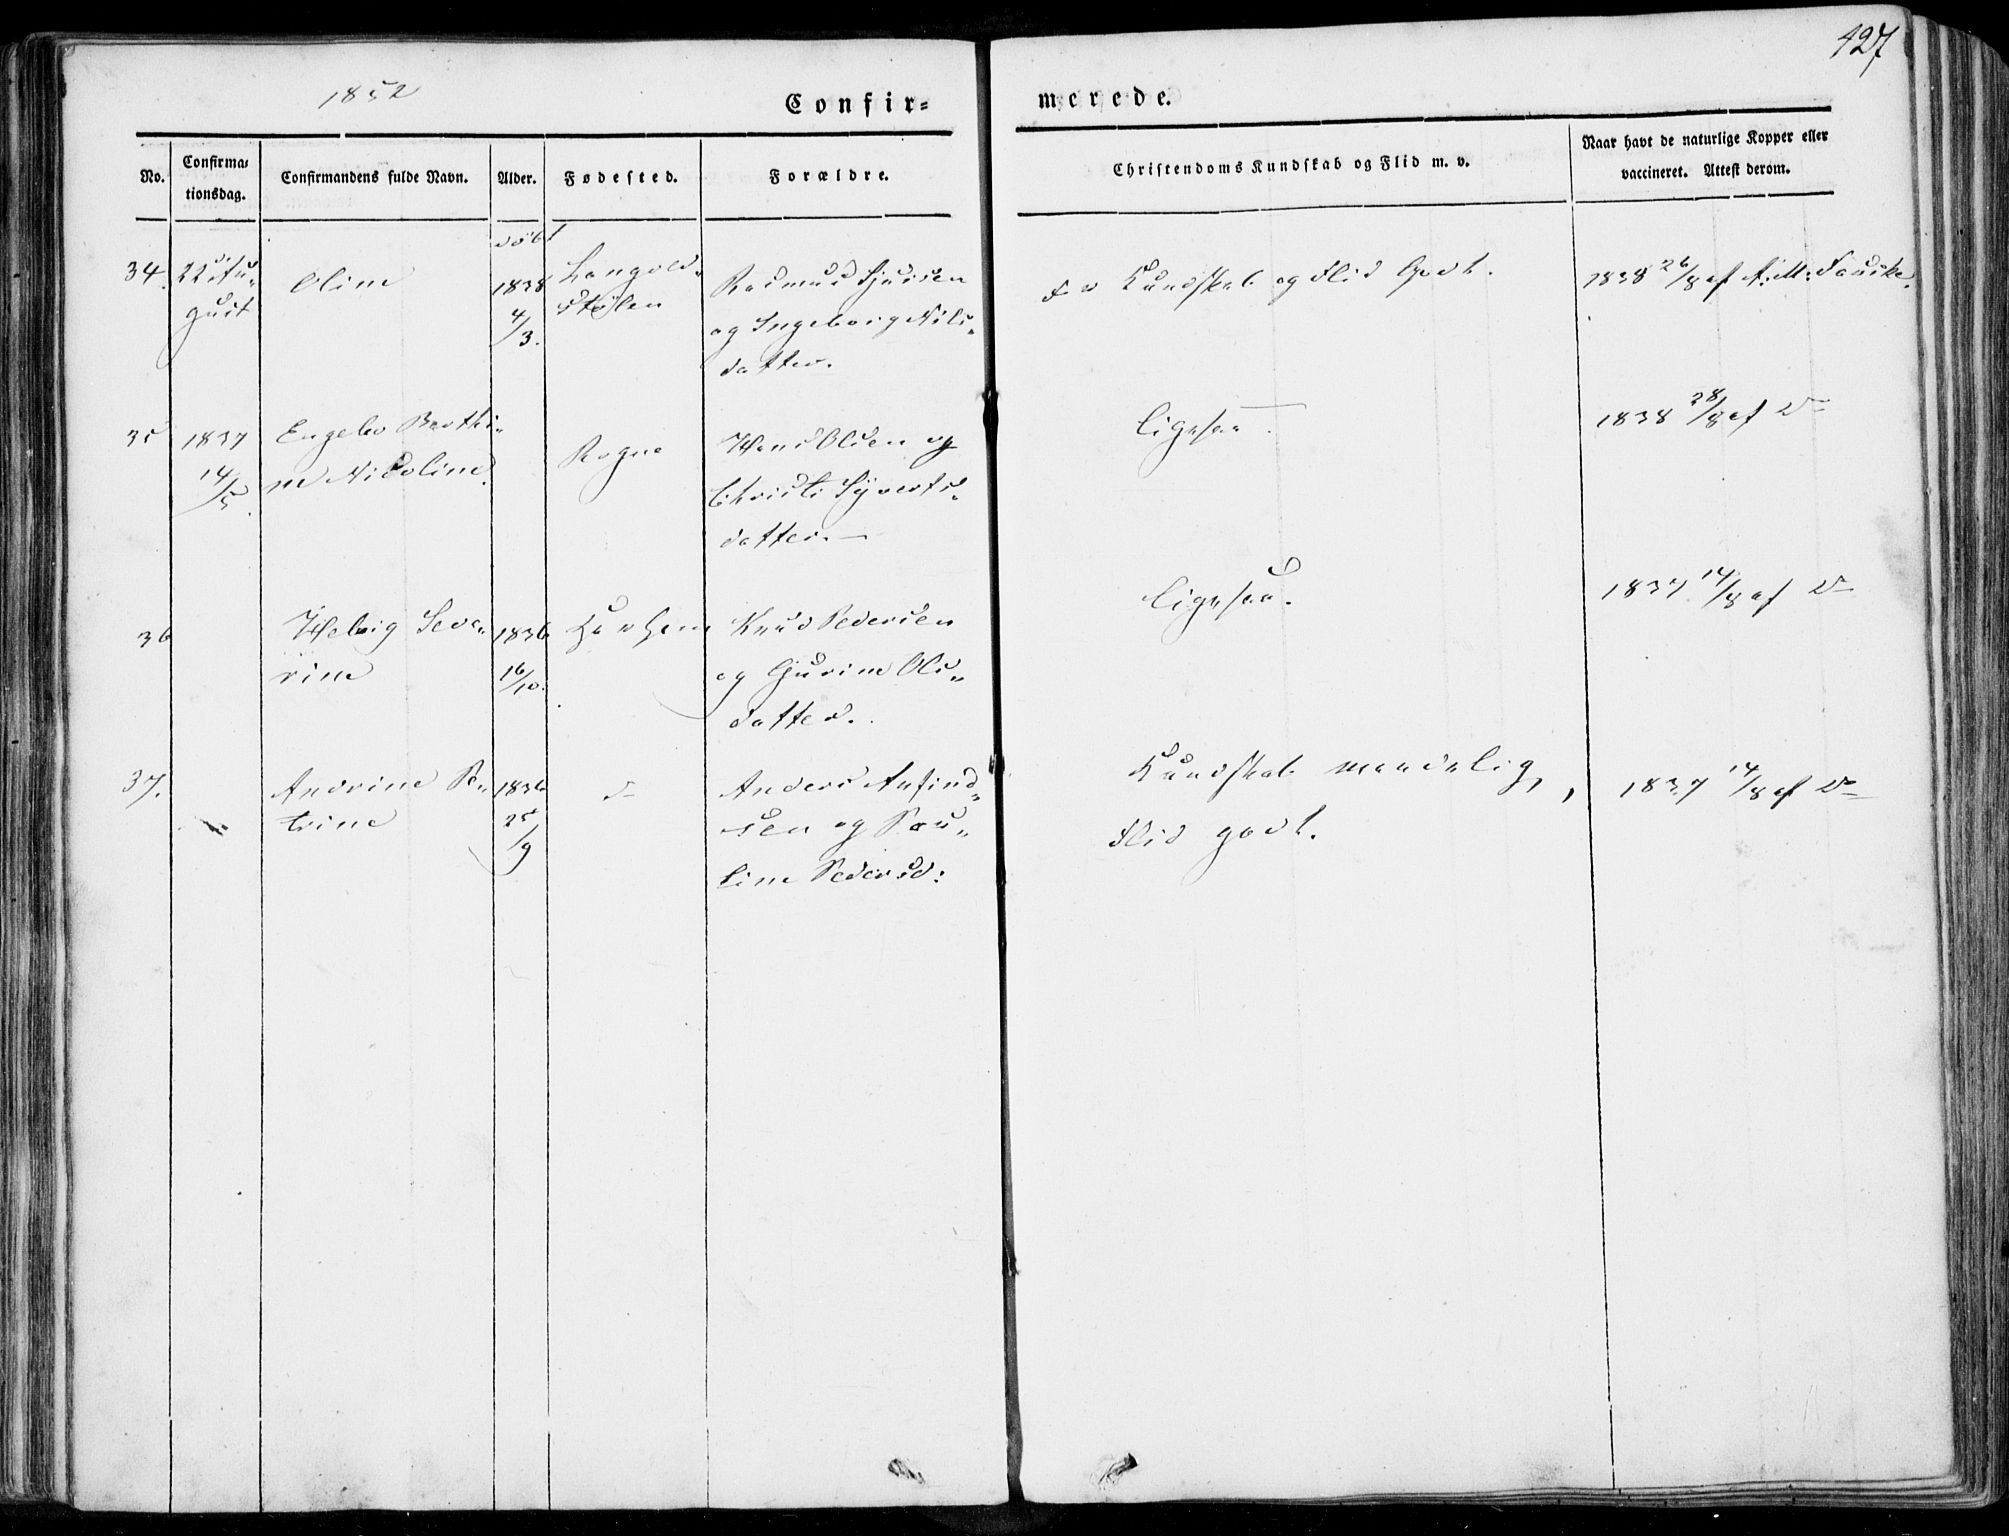 427
1852
Confir=
merede.
No.
Confirma=
tionsdag.
Confirmandens fulde Navn.
Alder.
Fødested.
Forældre.
Christendoms Kundskab og Flid m. v.
Naar havt de naturlige Kopper eller
vaccineret. Attest derom.
døbt
34. 22 Au-
gust
Oline
1838
4/3.
Langold-
stølen
Rasmus Sjursen
og Ingeborg Nils-
datter.
Kundskab og Flid Godt.
1838 26/8 af A. M. Fauske.
35 1837
14/5.
Engebor Berthi-
ne Nicoline.
Rogne
Hans Olsen og
Christi Syverts-
datter.
ligesaa.
1838 28/8 af Do
36
Helvig Seve-
rine
1836
16/10.
Knud Pedersen
og Gjurine Ols-
datter.
ligesaa.
1837 14/8 af Do
37.
Andrine Pe-
trine
1836
25/9
do
Anders Anfind-
sen og Pau-
line Pedersd:
Kundskab maadelig,
Flid godt.
1837 14/8 af Do